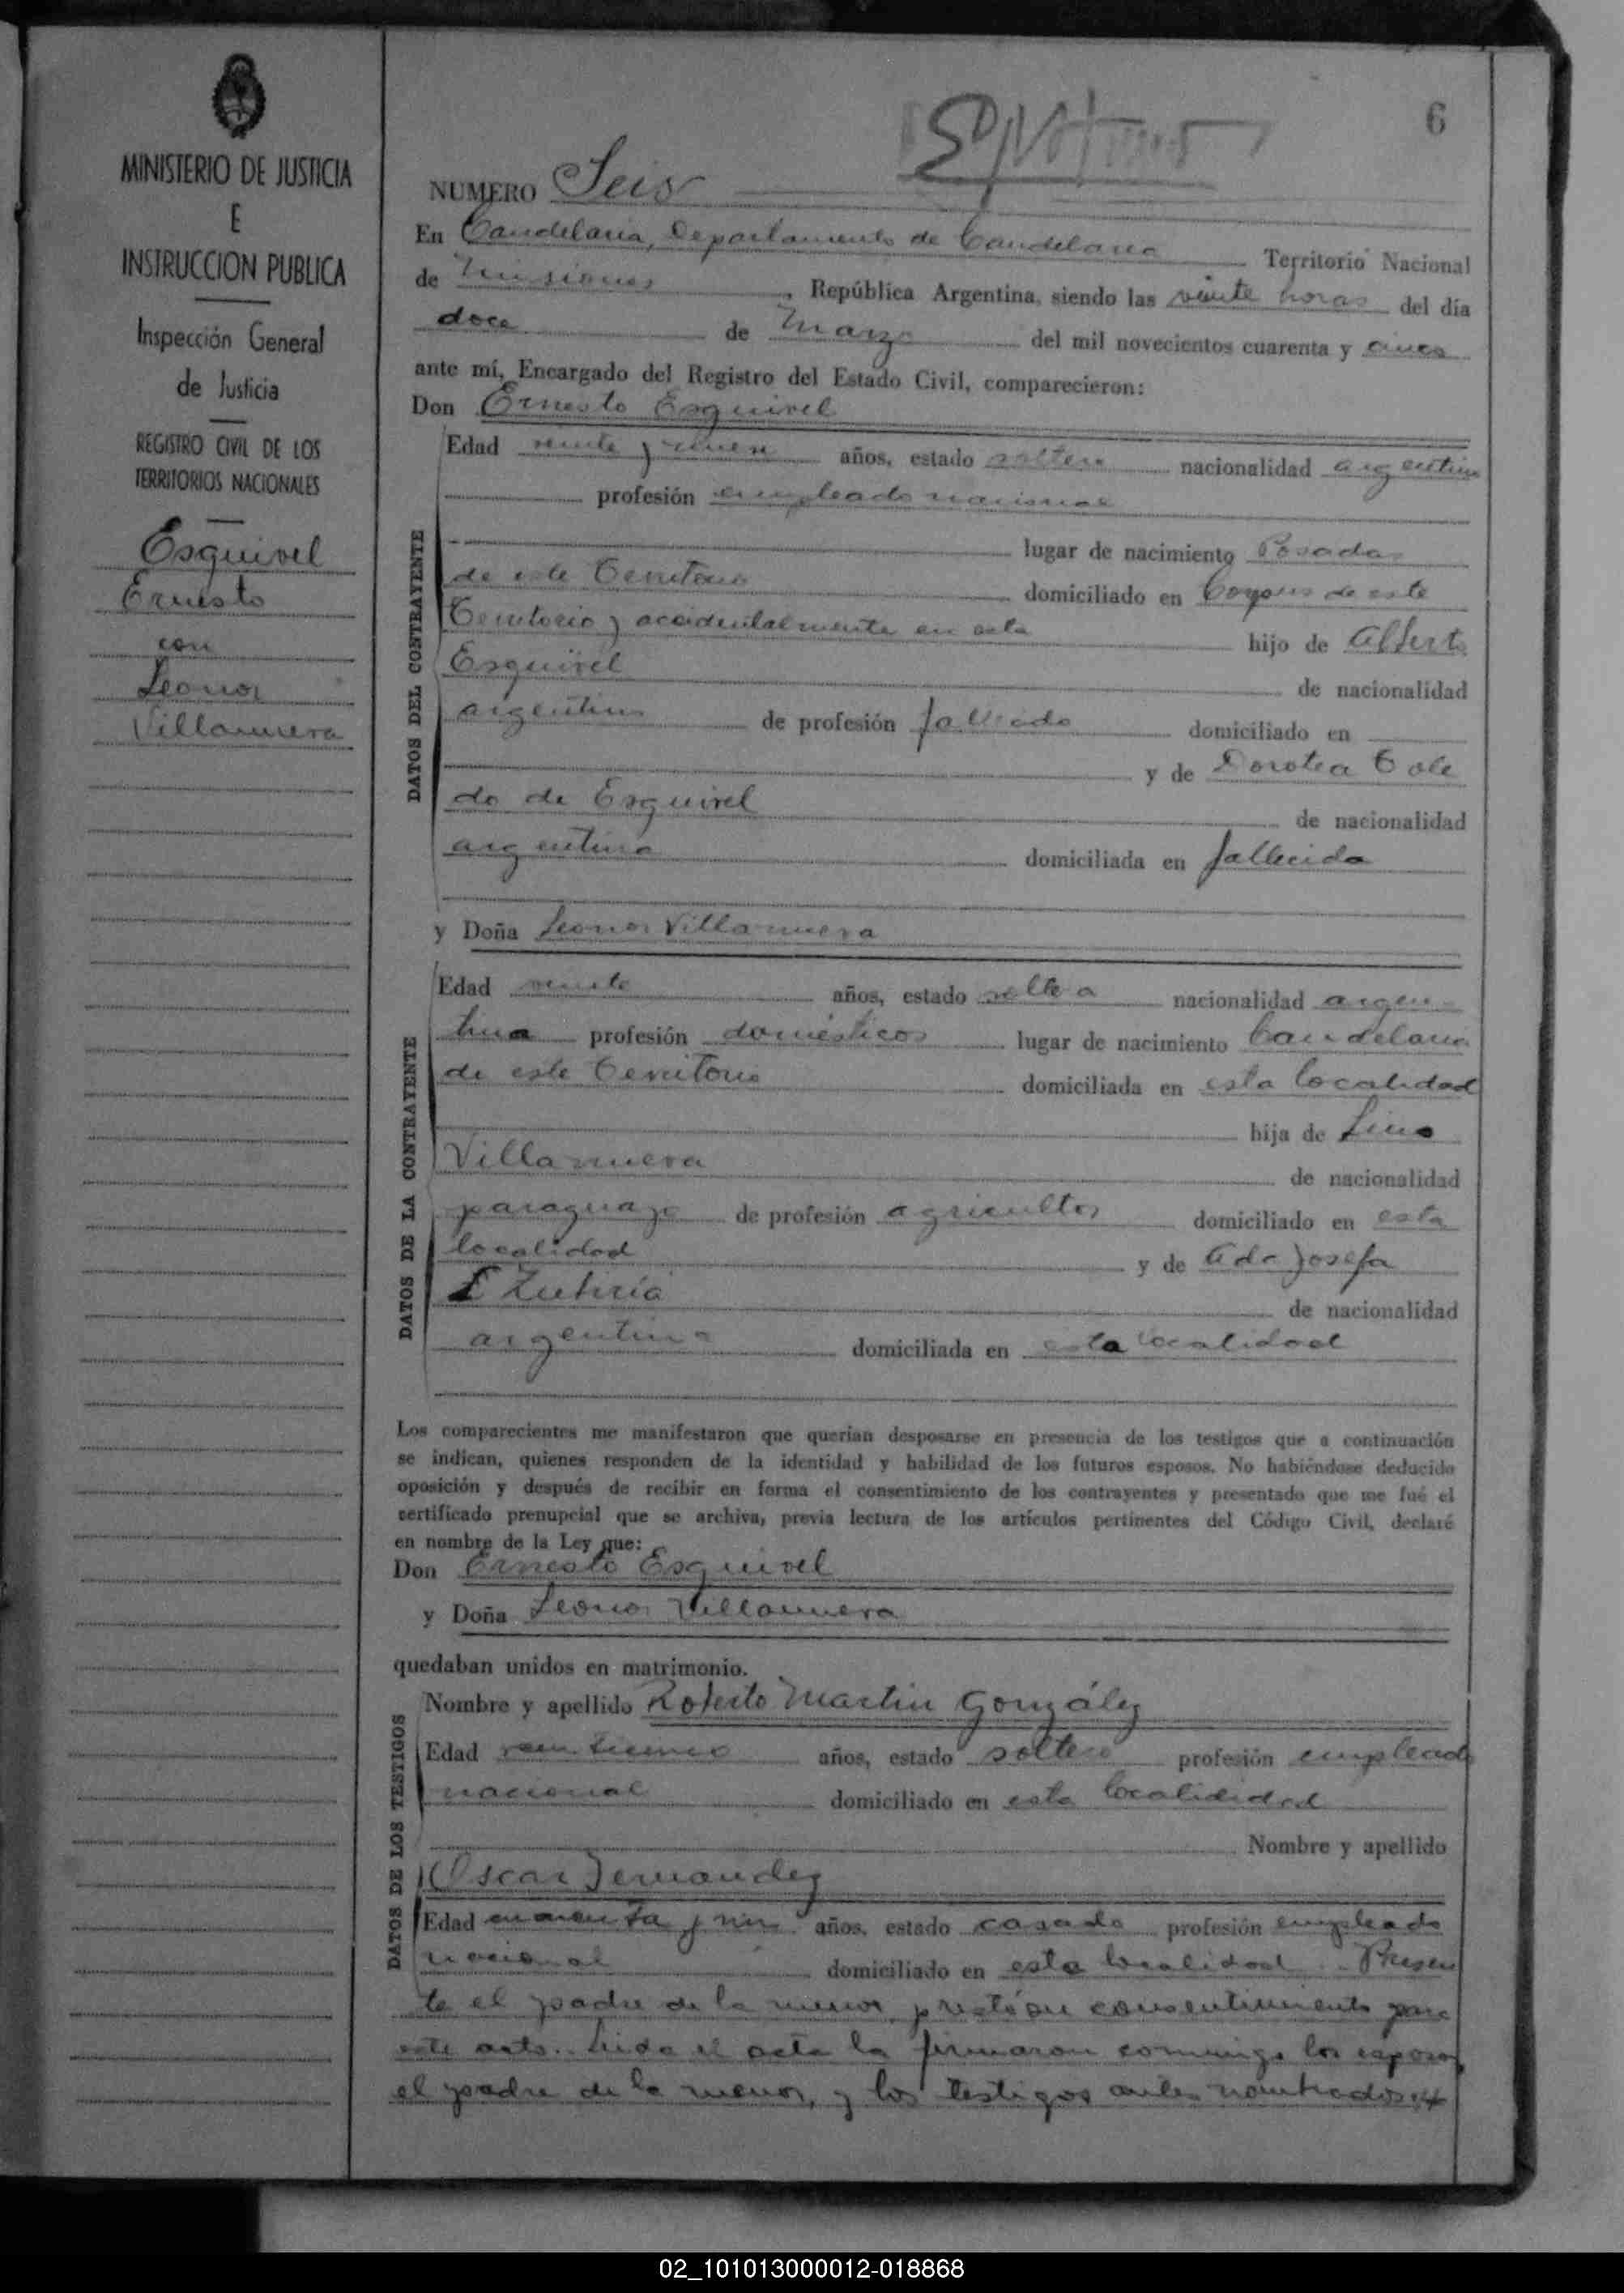 6
MINISTERIO DE JUSTICIA
E
INSTRUCCION PUBLICA
Inspección General
de Justicia
REGISTRO CIVIL DE LOS
TERRITORIOS NACIONALES
Esquivel
Ernesto
con
Leonor
Villanueva
NUMERO Seis
En Candelaria, Departamento de Candelaria Territorio Nacional
de Misiones, República Argentina, siendo las veinte horas del día
doce de Marzo del mil novecientos cuarenta y cinco
ante mí, Encargado del Registro del Estado Civil, comparecieron:
Don Ernesto Esquivel
DATOS DEL CONTRAYENTE
Edad veinte y nueve años, estado soltero nacionalidad argentina
profesión empleado nacional
lugar de nacimiento Posadas
de este Territorio domiciliado en Corpus de este
Territorio y accidentalmente en esta hijo de Alberto
Esquivel de nacionalidad
argentino de profesión fallecido domiciliado en
y de Dorotea Tole
do de Esquivel de nacionalidad
argentina domiciliada en fallecida
y Doña Leonor Villanueva
DATOS DE LA CONTRAYENTE
Edad veinte años, estado soltera nacionalidad argen
tina profesión domésticos lugar de nacimiento Candelaria
de este Territorio domiciliada en esta localidad
hija de Lino
Villanueva de nacionalidad
paraguayo de profesión agricultor domiciliado en esta
localidad y de Ada Josefa
de nacionalidad
argentina domiciliada en esta localidad
Los comparecientes me manifestaron que querían desposarse en presencia de los testigos que a continuación
se indican, quienes responden de la identidad y habilidad de los futuros esposos. No habiéndose deducido
oposición y después de recibir en forma el consentimiento de los contrayentes y presentado que me fué el
certificado prenupcial que se archiva, previa lectura de los artículos pertinentes del Código Civil, declaré
en nombre de la Ley que:
Don Ernesto Esquivel
y Doña Leonor Villanueva
quedaban unidos en matrimonio.
DATOS DE LOS TESTIGOS
Nombre y apellido Roberto Martin González
Edad veinticinco años, estado soltero profesión empleado
nacional domiciliado en esta localididad
Nombre y apellido
Oscar Fernandez
Edad cuarenta y años, estado casado profesión empleado
nacional domiciliado en esta localidad. Presen
te el padre de la menor prestó su consentimiento para
este acto. Leida el acta la firmaron conmigo los esposos,
el padre de la menor, y los testigos antes nombrados
02_101013000012-018868